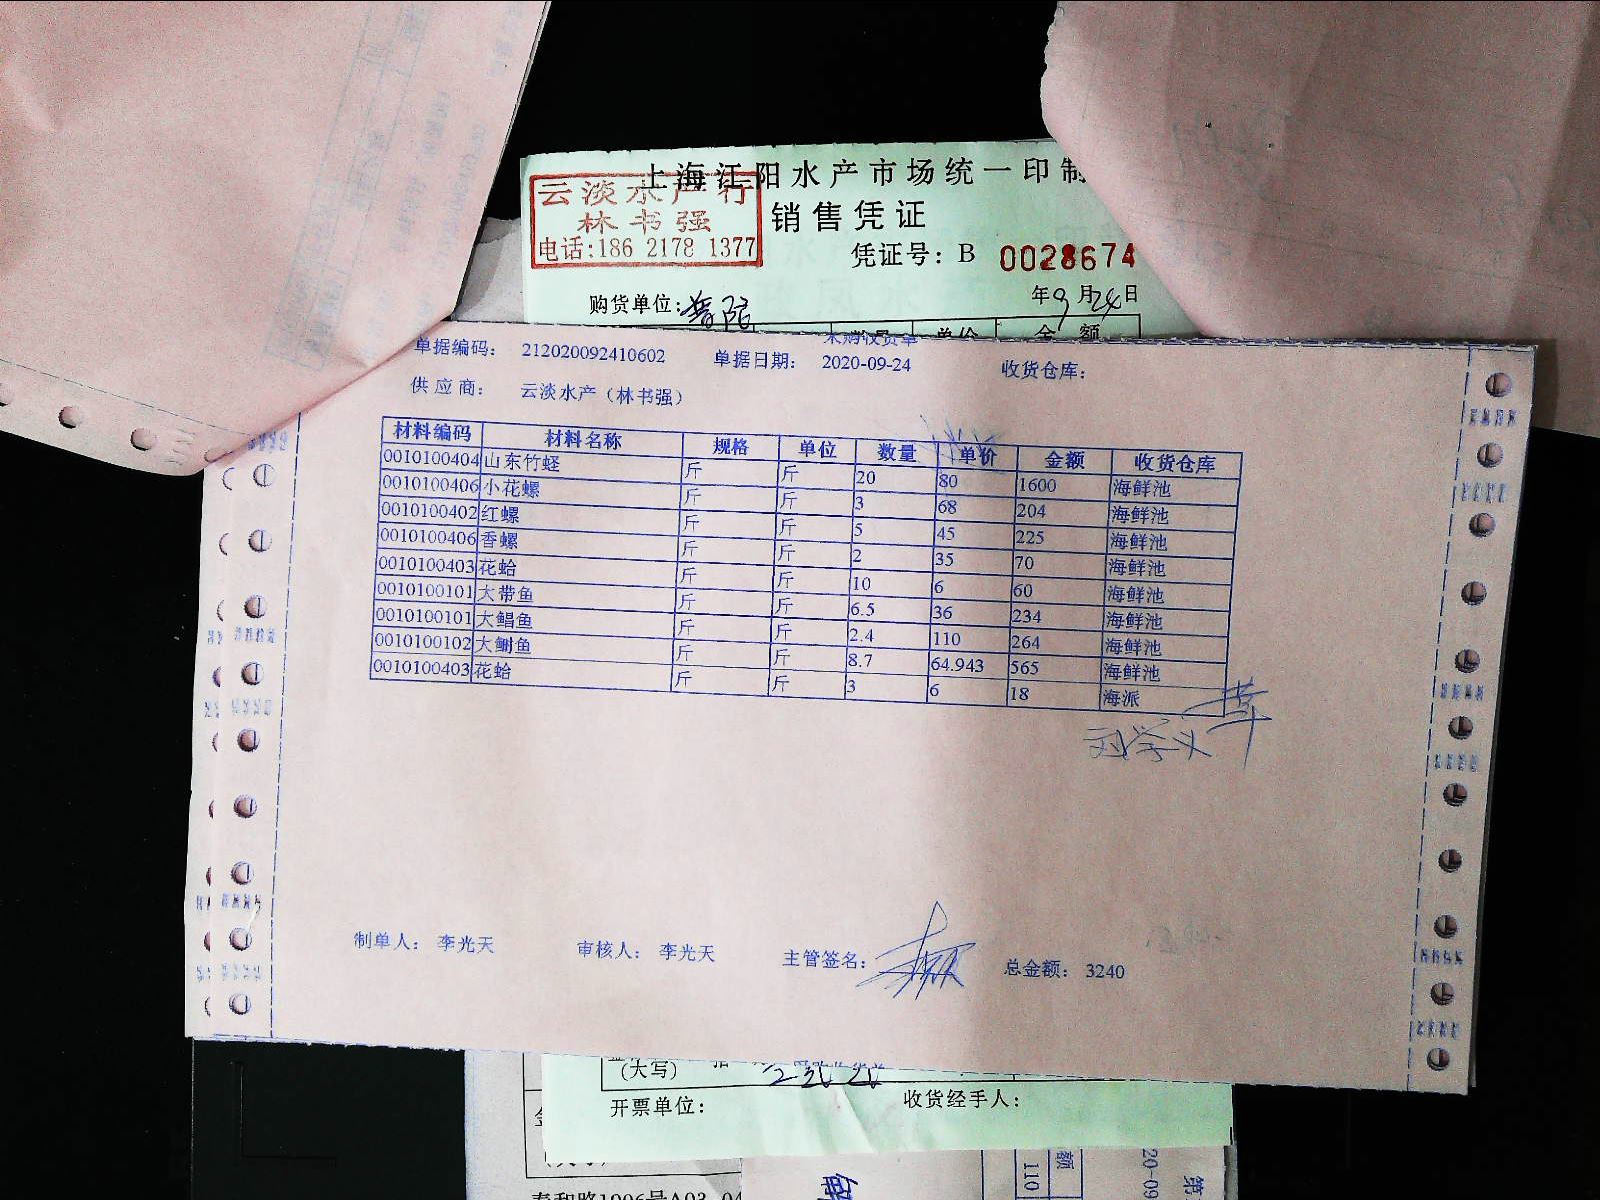 上海江阳水产市场统一印制
云淡水产行
林书强
电话:186 2178 1377
销售凭证
凭证号: B 0028674
购货单位:
年9月24日
数量 单价 金额
采购收货单
单据编码: 212020092410602 单据日期: 2020-09-24 收货仓库:
供应商: 云淡水产（林书强）
材料编码 材料名称 规格 单位 数量 单价 金额 收货仓库
0010100404 山东竹蛏 斤 斤 20 80 1600 海鲜池
0010100406 小花螺 斤 斤 3 68 204 海鲜池
0010100402 红螺 斤 斤 5 45 225 海鲜池
0010100406 香螺 斤 斤 2 35 70 海鲜池
0010100403 花蛤 斤 斤 10 6 60 海鲜池
0010100101 大带鱼 斤 斤 6.5 36 234 海鲜池
0010100101 大鲳鱼 斤 斤 2.4 110 264 海鲜池
0010100102 大鲥鱼 斤 斤 8.7 64.943 565 海鲜池
0010100403 花蛤 斤 斤 3 6 18 海派
制单人: 李光天 审核人: 李光天 主管签名: 总金额: 3240
(大写)
开票单位: 收货经手人:
110
额
20-09
第